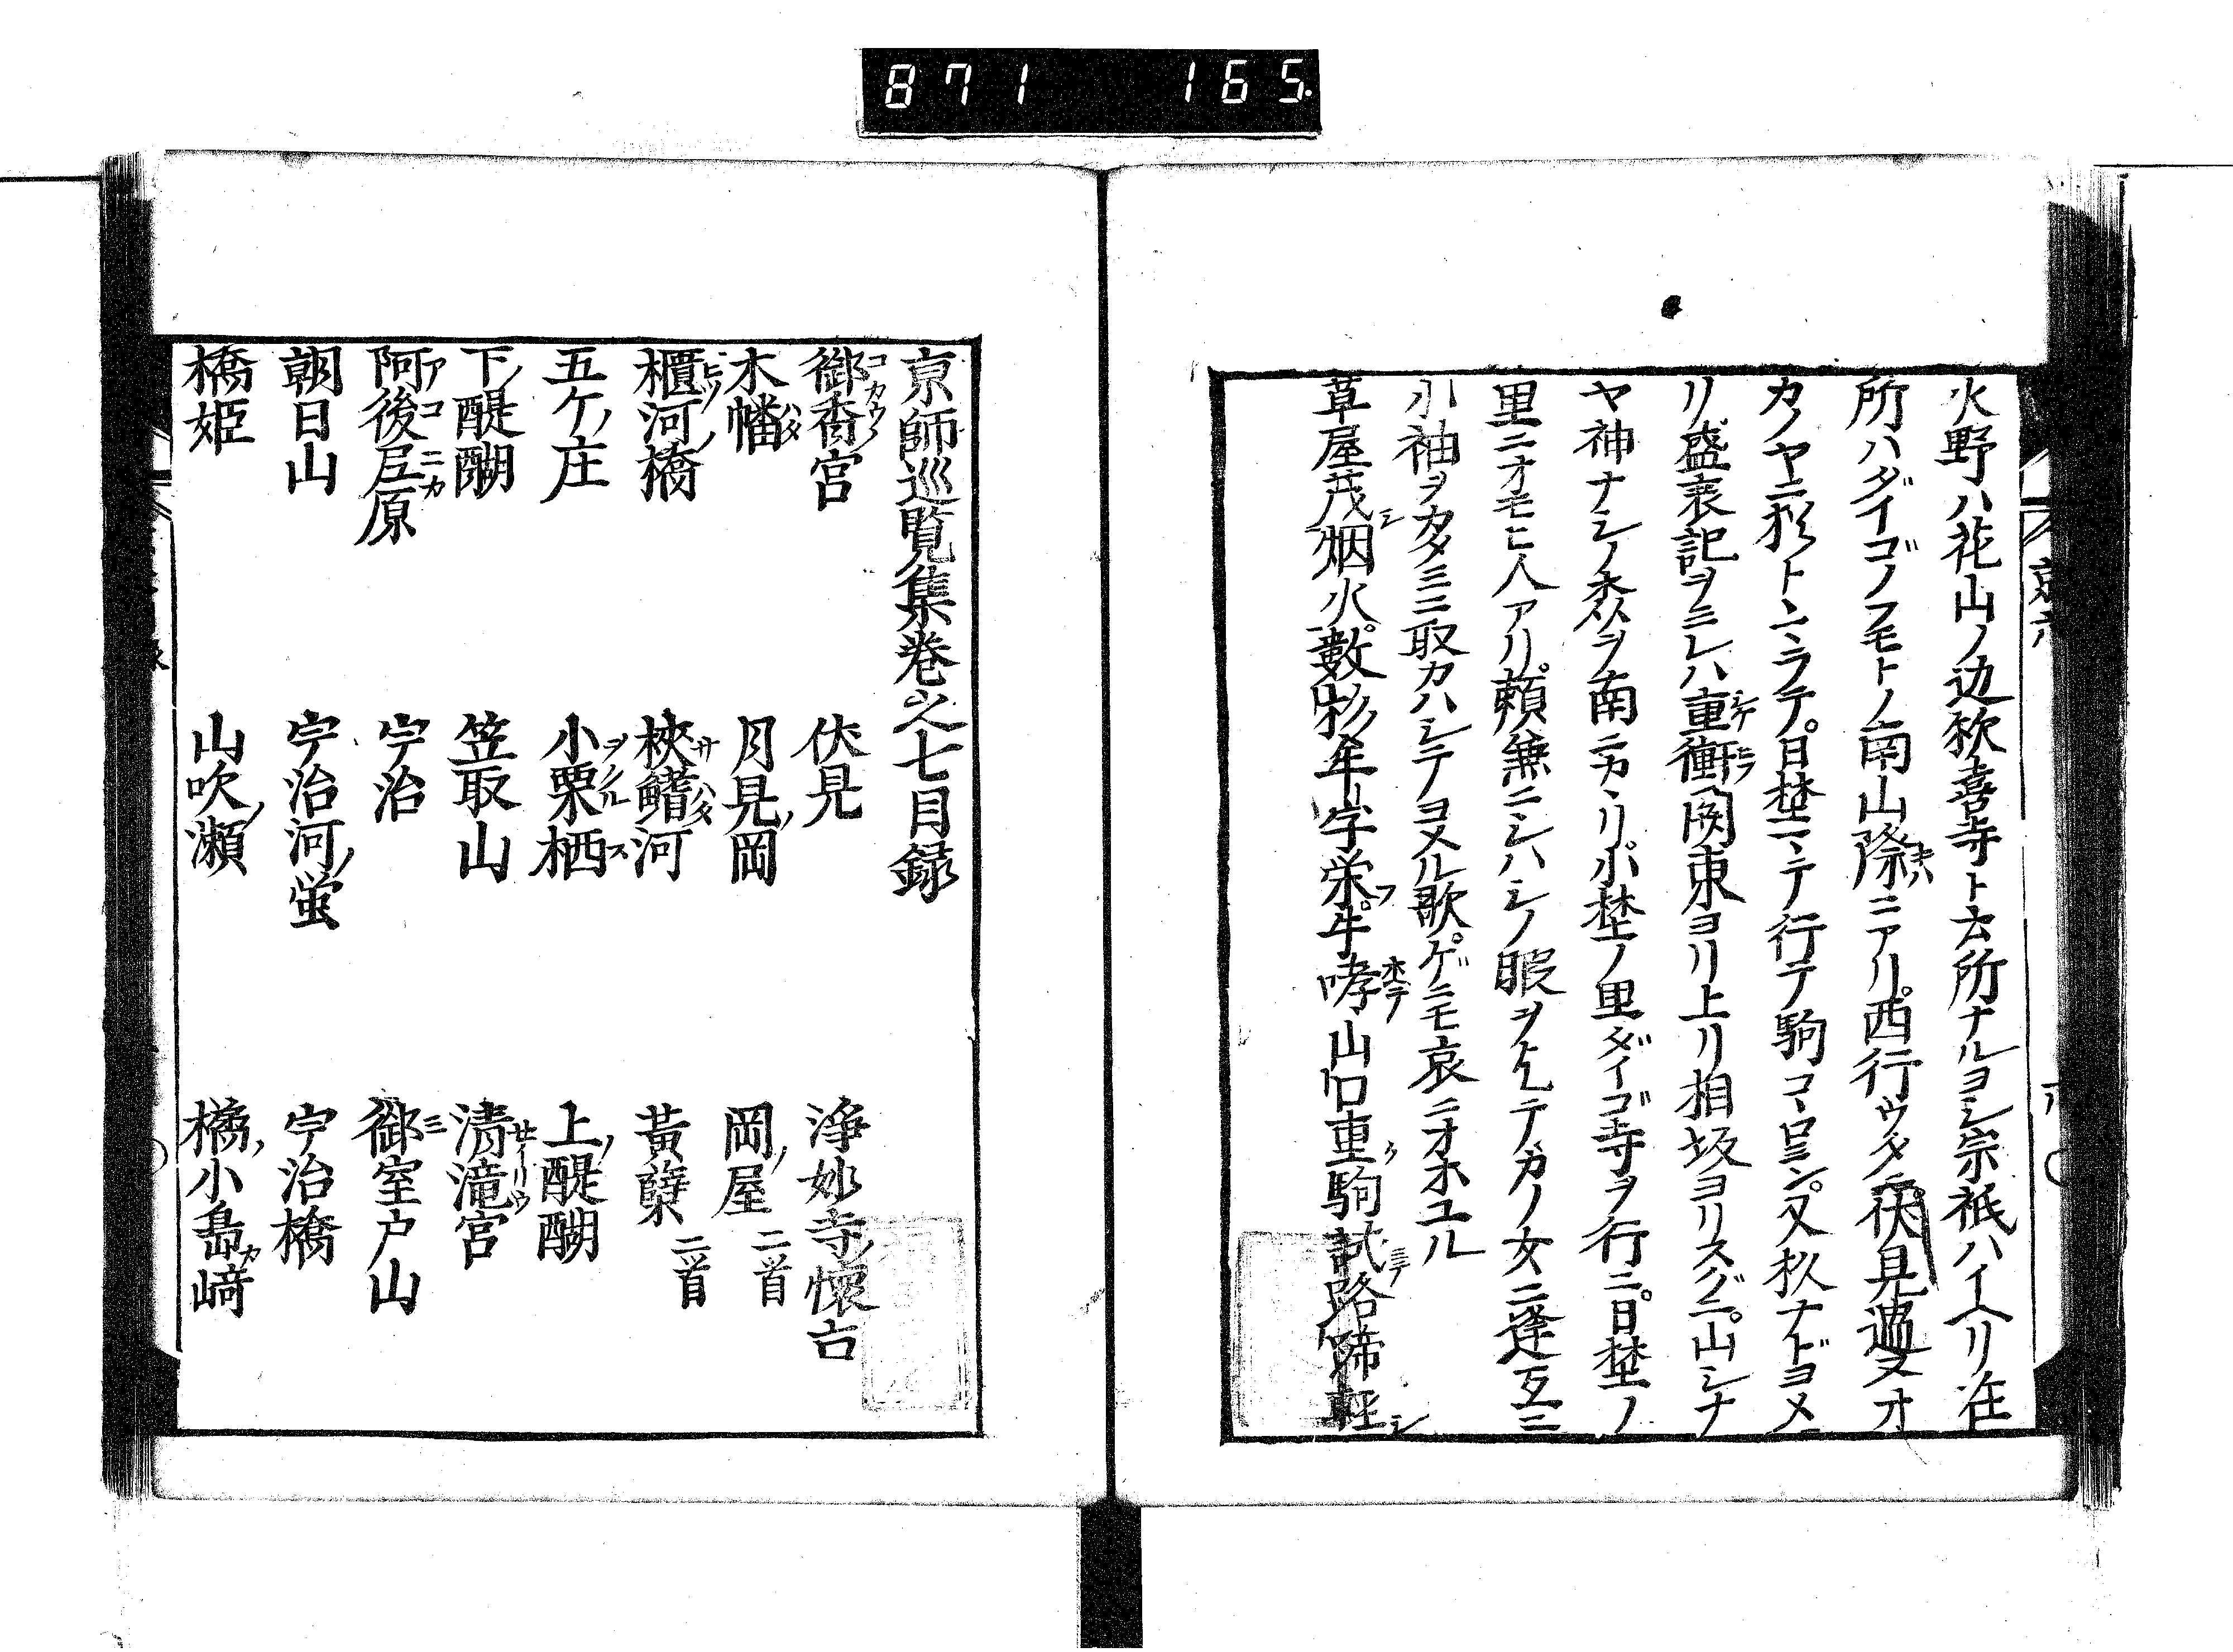 871 165.
火野ハ花山ノ边欤喜寺ト云所ナルヨシ宗祇ハイヘリ在
所ハダイゴノフモトノ南山際ニアリ。西行ウタニ。伏見過ヌオ
カノヤニ猶トヽマラテ。日埜マテ行テ駒コヽロミン。又杦ナドヨメ
リ。盛衰記ヲミレハ重衡関東ヨリ上リ相坂ヨリスグニ。山シナ
ヤ神ナシノ森ヲ南ニカヽリ。小埜ノ里ダイゴ寺ヲ行ニ。日埜ノ
里ニオモヒ人アリ。頼無ニシハシノ暇ヲトテガノ女ニ逢互ニ
小袖ヲカタミニ取カハシテヨメル歌。ゲニモ哀ニオホユル
草屋茂烟火。数杉牟字栄。牛哮山口重駒試路蹄軽
京師巡覧集巻之七目録
御香宮 伏見 浄妙寺懐古
木幡 月見岡 岡屋二首
櫃河橋 梜鰭河 黄檗二首
五ケ庄 小栗栖 上醍醐
下醍醐 笠取山 清滝宮
阿後尼原 宇治 御室戸山
朝日山 宇治河蛍 宇治橋
橋姫 山吹瀬 橘小島﨑